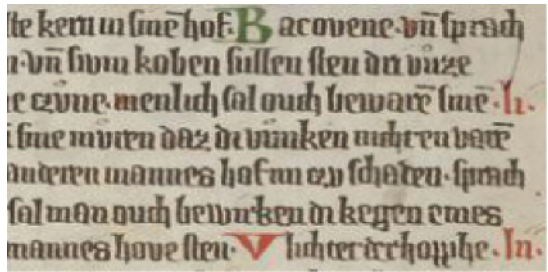 ſte kern in ſinē hof. Bacovene. vn̄ ſprach
n. vn̄ ſwin koben ſullen ſten dri vuze
e czune. menlich ſal ouch bewarē ſinē. h.
i ſine muren daz di vunken nicht en varē
anderen mannes hof im czu ſchaden. ſprach
ſal man ouch bewirken di kegen eines
mannes hove ſten. Vlichtet der hopphe. In.